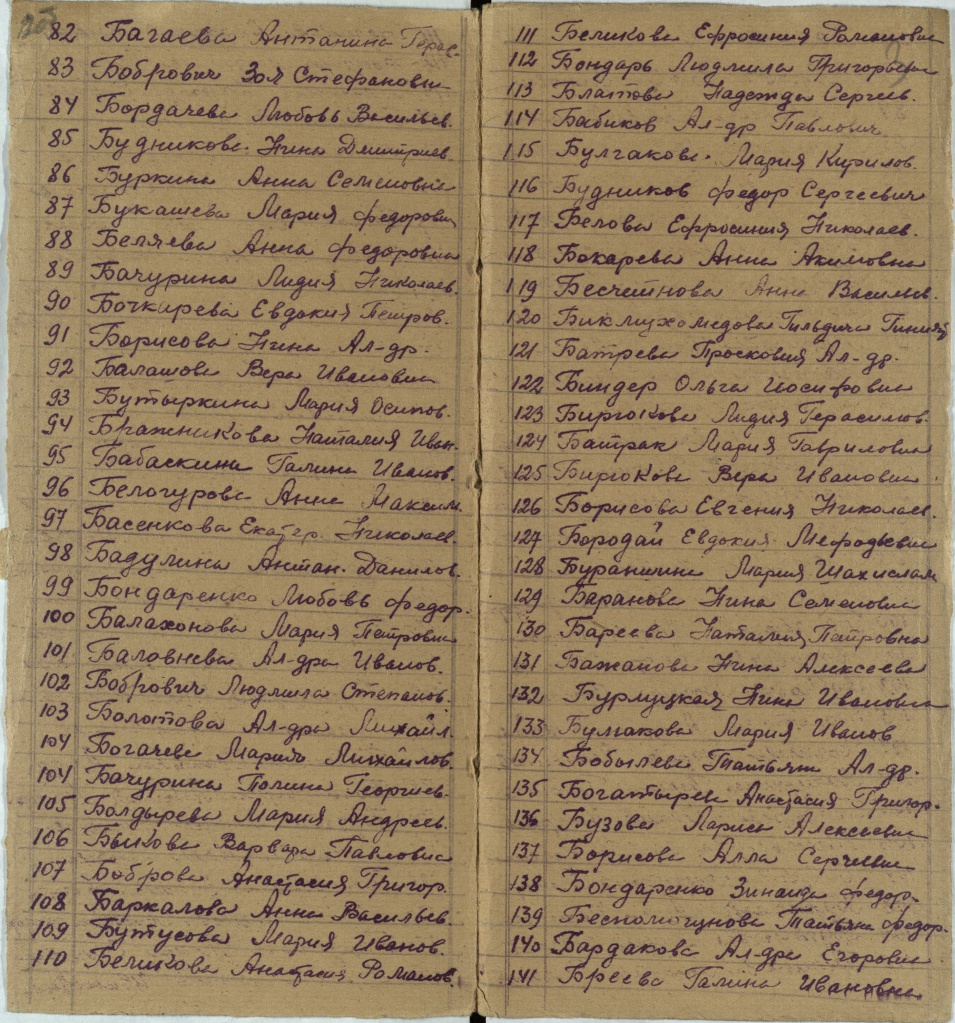 82 Багаева Антанина Герас.
83 Бобрович Зоя Стефановн
84 Бордачева Любовь Васильев.
85 Будникова Нина Дмитриев
86 Буркина Анна Семеновна
87 Букашева Мария Федоровн
88 Беляева Анна Федоровна
89 Бачурина Лидия Николаев.
90 Бочкарева Евдокия Петров.
91 Борисова Нина Ал-др.
92 Балашова Вера Ивановна
93 Бутыркина Мария Осипов.
94 Бражникова Наталия Иван.
95 Бабаскина Галина Иванов.
96 Белогурова Анна Максим.
97 Басенкова Екатер. Николаев.
98 Бадулина Антан. Данилов.
99 Бондаренко Любовь Федор.
100 Балахонова Мария Петровна
101 Баловнева Ал-дра Иванов.
102 Бобрович Людмила Степанов.
103 Болотова Ал-дра Михайл.
104 Богачева Мария Михайлов.
104 Бачурина Полина Георгиев.
105 Болдырева Мария Андреев.
106 Быкова Варвара Павловна
107 Боброва Анастасия Григор.
108 Баркалова Анна Васильев.
109 Бутусова Мария Иванов.
110 Беликова Анастасия Романов.
111 Беликова Ефросиния Романовна
112 Бондарь Людмила Григорьевна
113 Блатова Надежда Сергеев.
114 Бабиков Ал-др Павлович
115 Булгакова Мария Кирилов.
116 Будников Федор Сергеевич
117 Белова Ефросиния Николаев.
118 Бокарева Анна Акимовна
119 Бесчетнова Анна Васильев.
120 Бикмухомедова Гильдича
121 Батрева Просковия Ал-др.
122 Биндер Ольга Иосифовна
123 Бирюкова Лидия Герасимов.
124 Батрак Мария Гавриловна
125 Бирюкова Вера Ивановна
126 Борисова Евгения Николаев.
127 Бородай Евдокия Мефодьевна
128 Бураншина Мария Шахислам
129 Баранова Нина Семеновна
130 Бареева Наталия Патровна
131 Бажанова Нина Алексеева
132 Бурлуцкая Нина Ивановна
133 Булгакова Мария Иванов
134 Бобылева Татьяна Ал-др.
135 Богатырева Анастасия Григор.
136 Бузова Лариса Алексеевна
137 Борисова Алла Сергеевна
138 Бондаренко Зинаида Федор.
139 Татьяна Федор.
140 Бардакова Ал-дра Егоровна
141 Бреева Галина Ивановна.